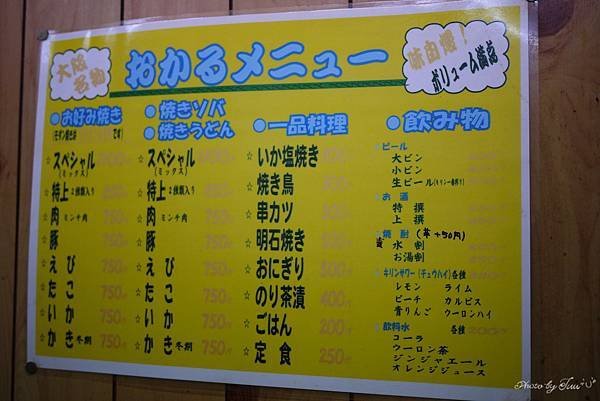 大阪名物
おかるメニュー
味自慢！
ボリューム満点
●お好み焼き
です)
☆スペシャル
(ミックス)
☆特上 2種類入り
☆肉 ミンチ肉 750
☆豚 750
☆えび 750
☆たこ 750
☆いか 750
☆かき 冬期 750
●焼きソバ
●焼きうどん
☆スペシャル
(ミックス)
☆特上 2種類入り
☆肉 ミンチ肉 750
☆豚 750
☆えび 750
☆たこ 750
☆いか 750
☆かき 冬期 750
●一品料理
☆いか塩焼き
☆焼き鳥
☆串カツ
☆明石焼き
☆おにぎり
☆のり茶漬 400
☆ごはん 200
☆定食 250
●飲み物
ビール
大ビン
小ビン
生ビール
お酒
特撰
上撰
焼酎 (芋+50円)
麦 水割
お湯割
キリンサワー(チュウハイ)各種
レモン ライム
ピーチ カルピス
青りんご ウーロンハイ
飲料水 各種 200
コーラ
ウーロン茶
ジンジャエール
オレンジジュース
Photo by